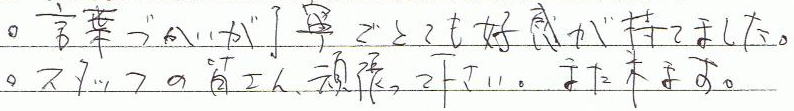 。言葉づかいが丁寧でとても好感が持てました。
。スタッフの皆さん、頑張って下さい。また来ます。